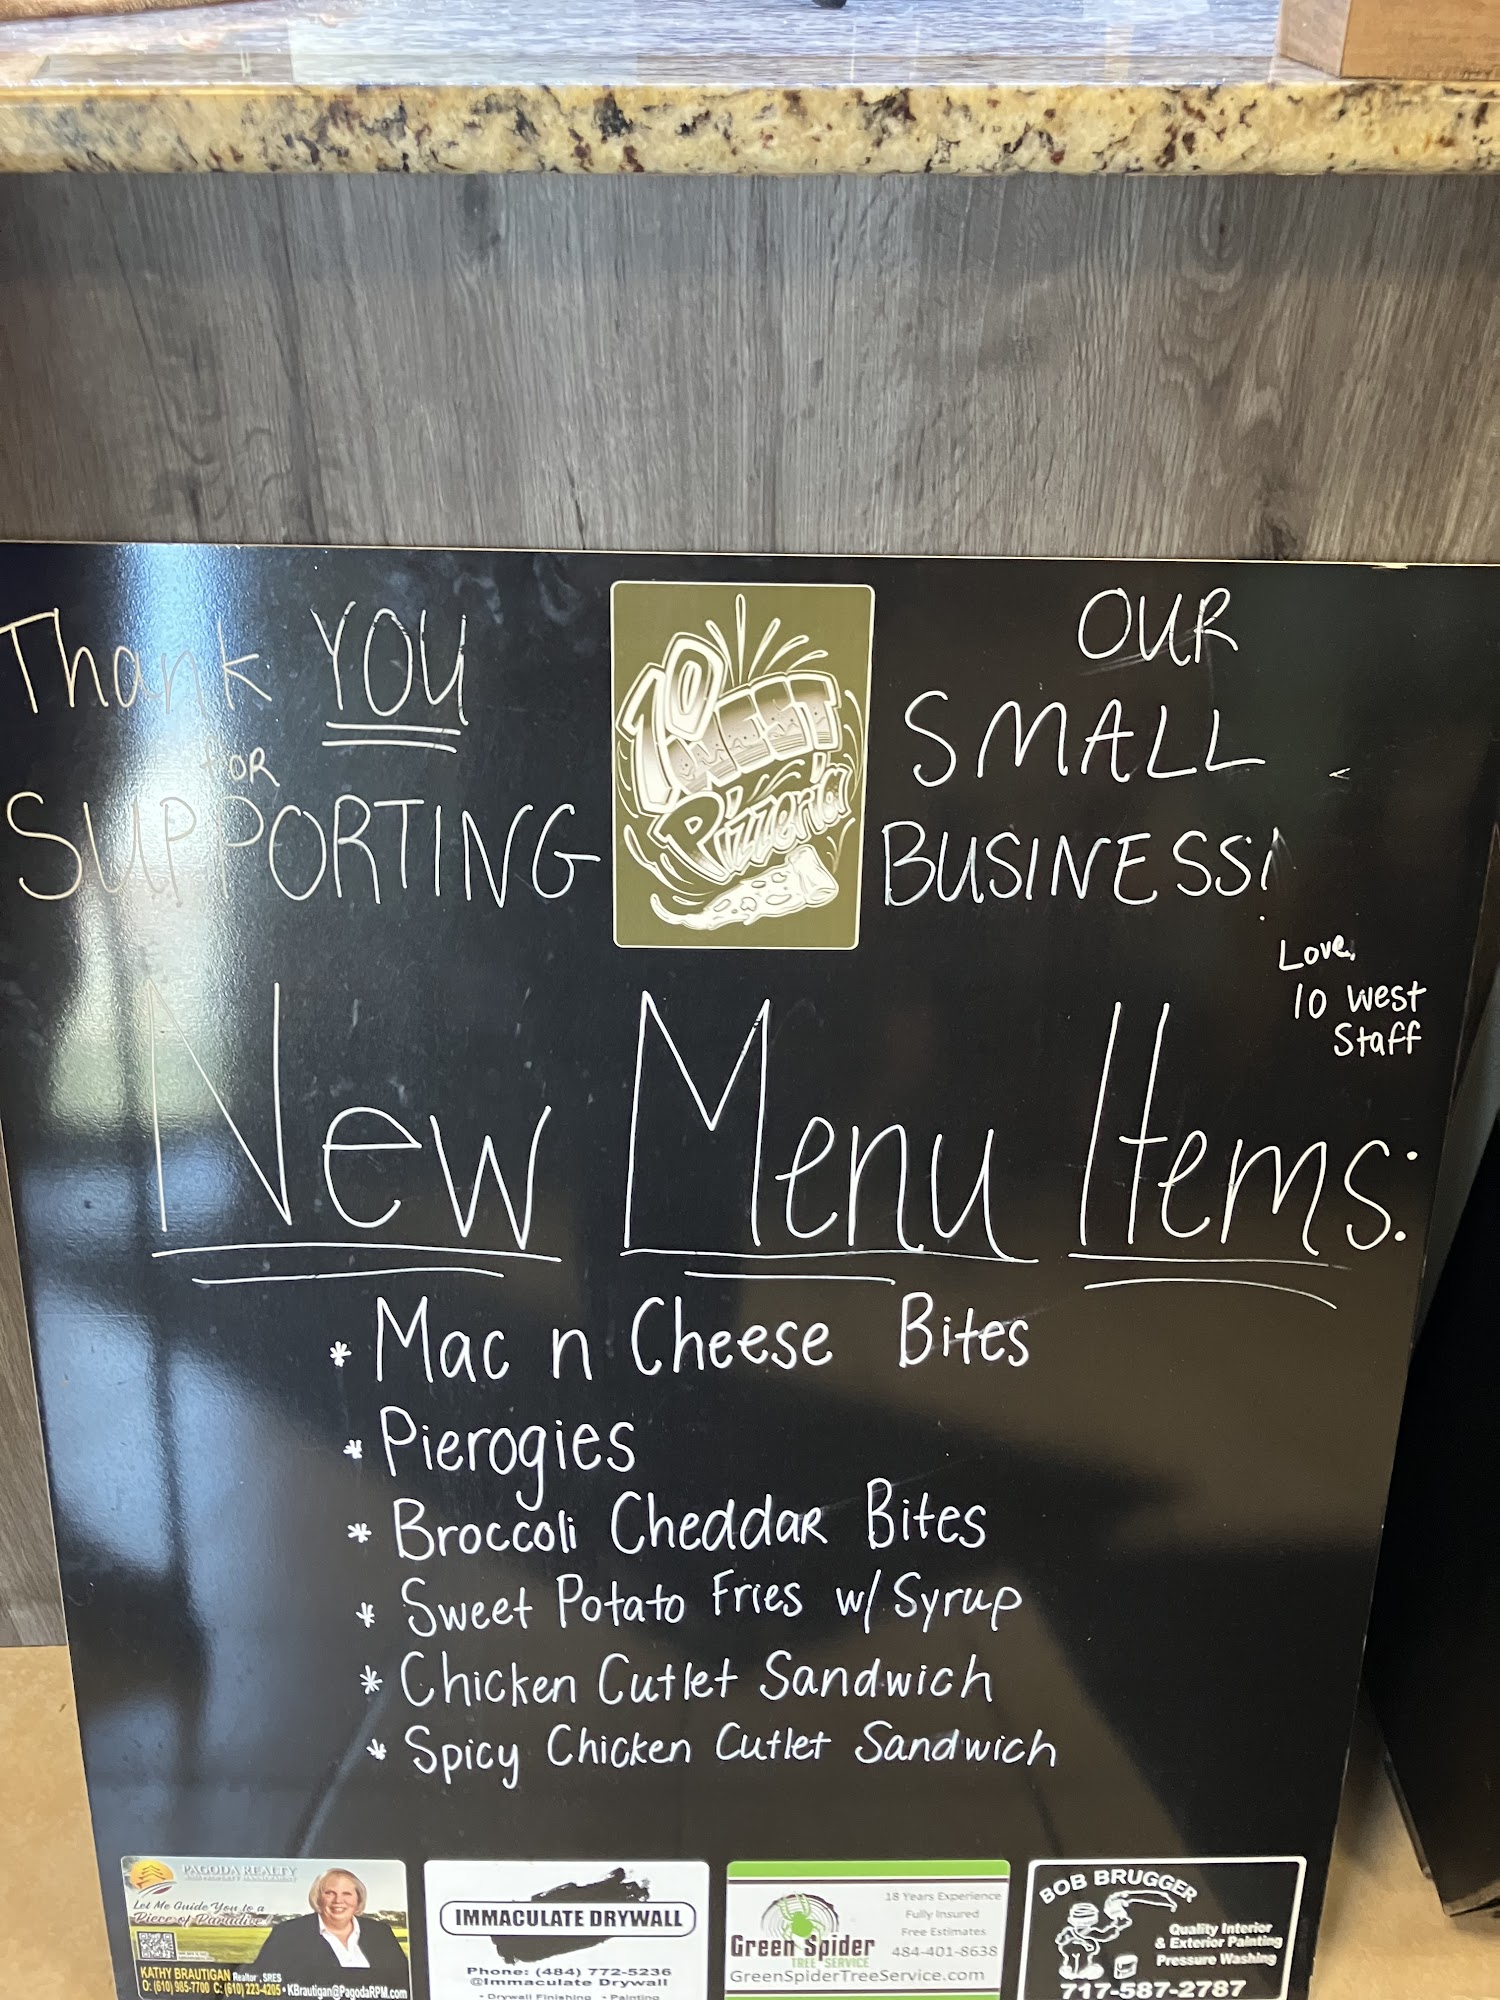 Thank YOU
for
SUPPORTING
10 WEST
Pizzeria
OUR
SMALL
BUSINESS!
Love,
10 West
Staff
New Menu Items:
* Mac n Cheese Bites
* Pierogies
* Broccoli Cheddar Bites
* Sweet Potato Fries w/ Syrup
* Chicken Cutlet Sandwich
* Spicy Chicken Cutlet Sandwich
PAGODA REALTY
Let Me Guide You to a
Piece of Paradise!
KATHY BRAUTIGAN Realtor, SRES
O: (610) 985-7700 C: (610) 223-4205 • KBrautigan@PagodaRPM.com
IMMACULATE DRYWALL
Phone: (484) 772-5236
@Immaculate Drywall
• Drywall Finishing • Painting
18 Years Experience
Fully Insured
Free Estimates
484-401-8638
Green Spider
TREE SERVICE
GreenSpiderTreeService.com
BOB BRUGGER
Quality Interior
& Exterior Painting
Pressure Washing
717-587-2787